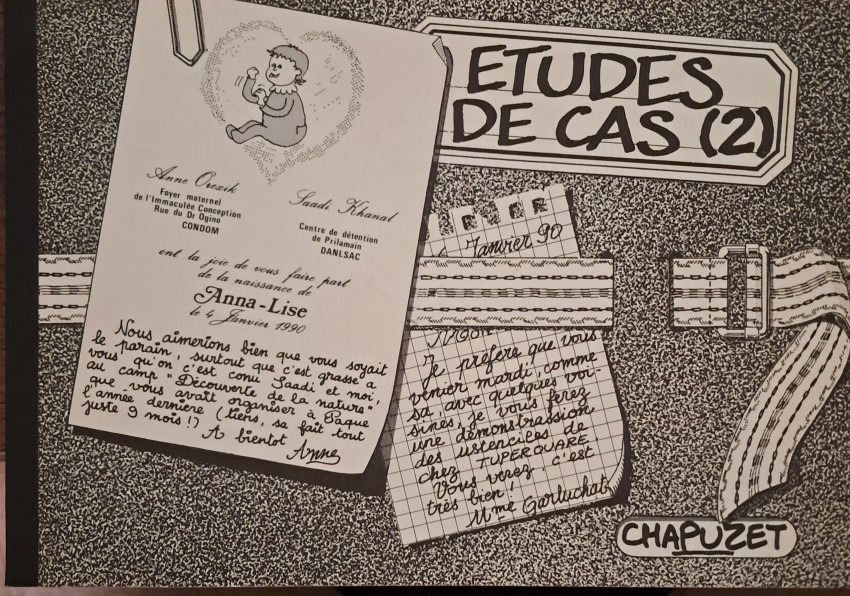 ETUDES
DE CAS (2)
Anne Orexik
Foyer maternel
de l'Immaculée Conception
Rue du Dr Ogino
CONDOM
Saadi Khanal
Centre de détention
de Prilamain
DANLSAC
ont la joie de vous faire part
de la naissance de
Anna-Lise
le 4 Janvier 1990
Nous aimerions bien que vous soyait
le parain, surtout que c'est grasse a
vous qu'on c'est conu Saadi et moi,
au camp "Découverte de la nature"
que vous avait organiser à Pâque
l'année dernière (tiens, sa fait tout
juste 9 mois!)
A bientot
Anne
Janvier 90
Je préfère que vous
venier mardi, comme
sa, avec quelques voi-
sines, je vous ferez
une démonstrassion
des ustenciles de
chez TUPEROUARE
Vous verez c'est
très bien!
Mme Garluchat
CHAPUZET